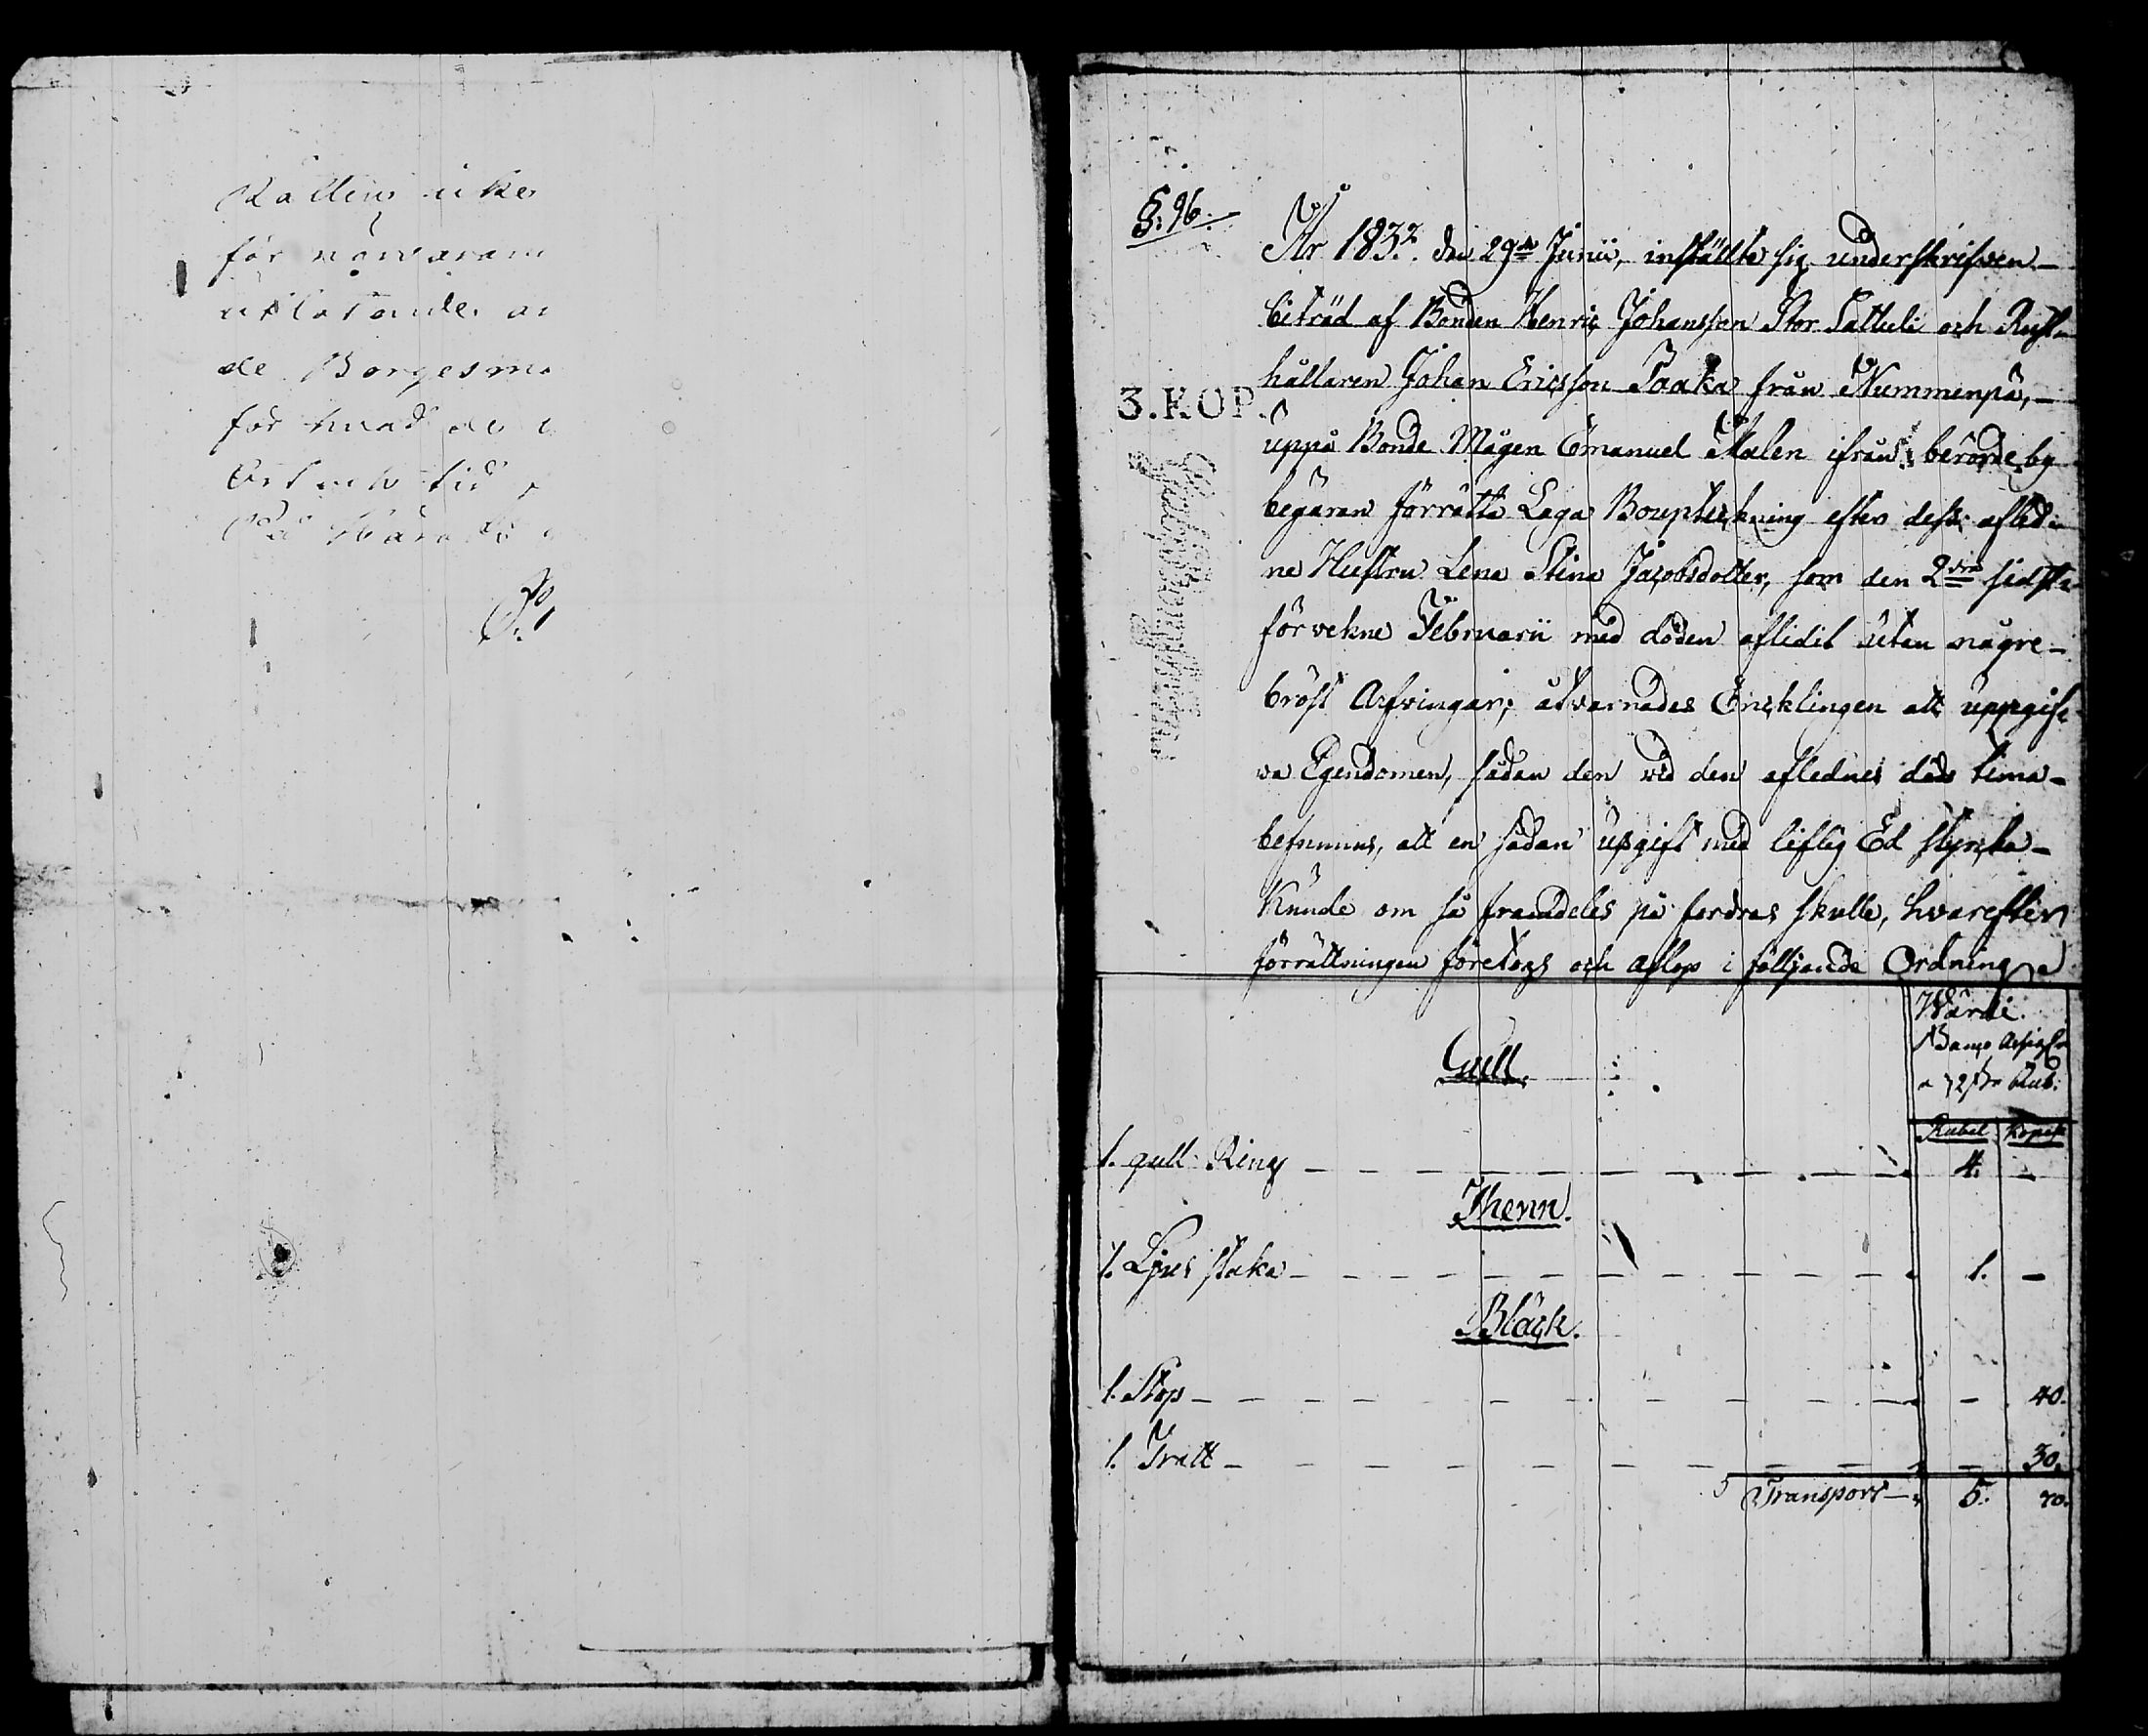 Rättens
för närvaran
utlåtande, an
de Borgesme
för hvad de
Ort och tid
På Härads
§. 96.
År 1832. den 29de Junii, inställte sig underskrifven
biträd af Bonden Henric Johansson Stor Sattuli och Rust
hållaren Johan Ericsson Paaka från Nummenpä,
3. KOP.
uppå Bonde Mågen Emanuel Malen ifrån berörde by
begäran förrätta Laga Boupteckning efter dess afled-
ne Hustru Lena Stina Jacobsdotter, som den 2dra sidst
förvekne Februarii med döden aflidit utan någre
bröst Arfvingar; åtvarnades Encklingen att uppgif
va Egendomen, sådan den vid den aflednes döds tima
befunnus, att en sådan upgift med liflig Ed styrcka
kunde om så framdeles på fordras skulle, hvarefter
förrättningen företogs och aflop i följande Ordning
Wärde.
Banco Assign
a 72 st Rub:
Gull.
Rubel Kopek
1. gull Ring 4. -
Thenn.
1. Ljus staka 1. -
Bläck.
1. Stop - 40.
1. Tratt - 30.
Transport 5. 70.